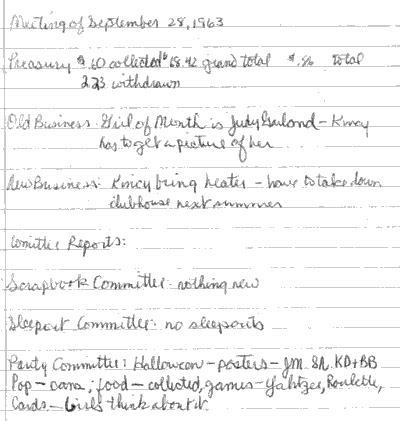 Meeting of September 28, 1963
Treasury $.60 collected $68.42 grand total $.86 total
2.23 withdrawn
Old Business: Girl of Month is Judy Garland - Kincy
has to get a picture of her
New Business: Kincy bring heater - have to take down
clubhouse next summer
Comittee Reports:
Scrapbook Committee: nothing new
Sleepout Committee: no sleepouts
Party Committee: Halloween - posters - JM. SR. KD + BB
Pop - cans; food - collected, games - Yahtzee, Roulette,
Cards. - Girls think about it.